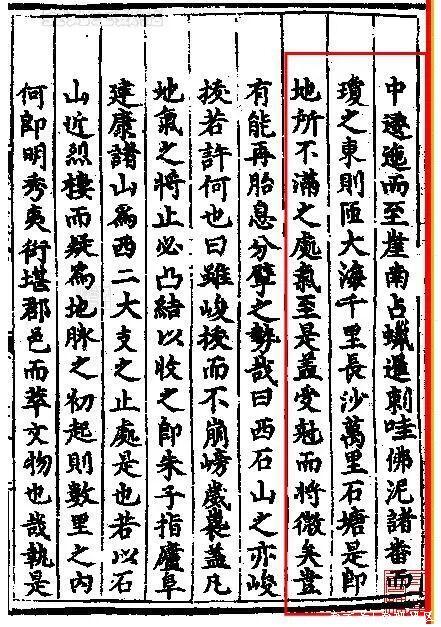 中邐迤而至崖南占蠟暹剌哇佛泥諸番而
瓊之東則匝大海千里長沙萬里石塘是即
地所不滿之處氣至是蓋受尅而將微矣豈
有能再胎息分擘之勢哉曰西石山之亦峻
掕若許何也曰雖峻掕而不崩嵭歲蓋凡
地氣之將止必凸結以收之即朱子指廬阜
建康諸山爲西二大支之止處是也若以石
山近烈樓而疑爲地脈之初起則數里之內
何即明秀夷衍堪郡邑而萃文物也哉執是